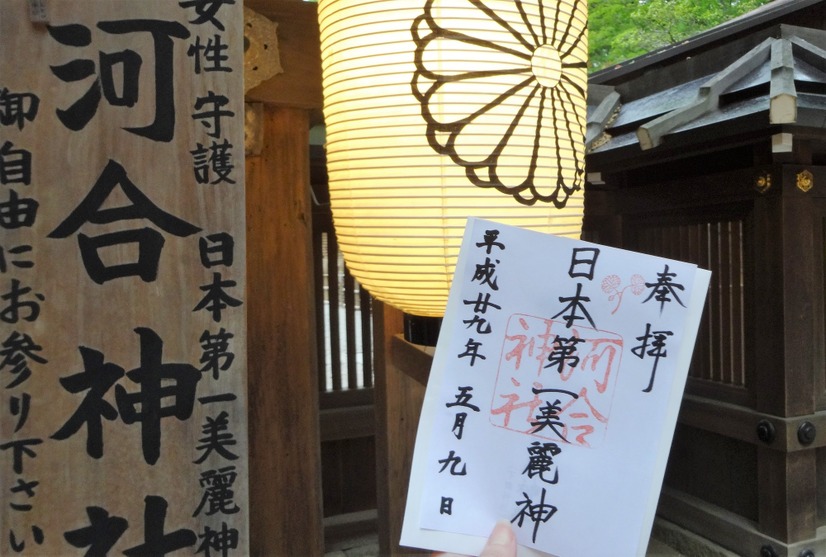 女性守護 日本第一美麗神
河合神社
御自由にお参り下さい
奉拝
日本第一美麗神
河合神社
平成廿九年 五月九日